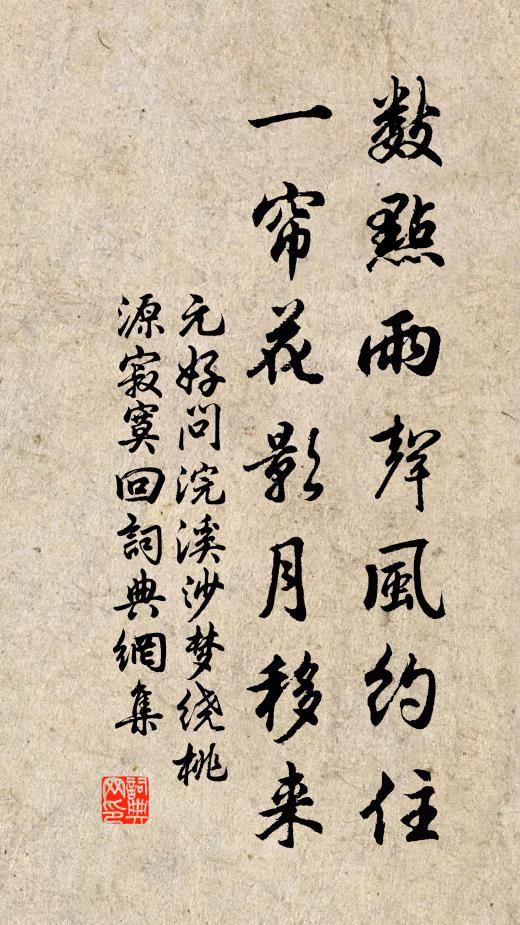 數點雨聲風約住
一帘花影月移来
元好问浣溪沙梦绕桃
源寂寞回詞典網集
詞典
网印